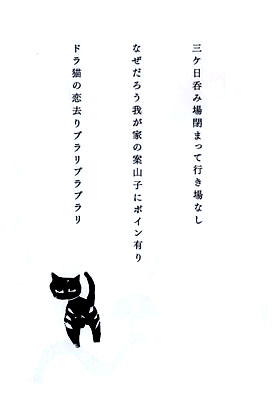 三ケ日呑み場閉まって行き場なし
なぜだろう我が家の案山子にボイン有り
ドラ猫の恋去りブラリブラブラリ